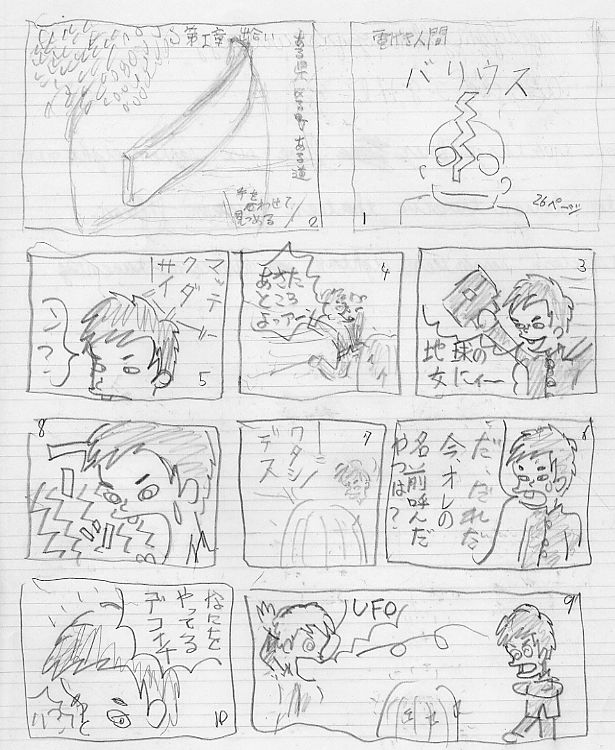 電げき人間
バリウス
26ページ
1
第1章 出合い
ある県 ある町 ある道
手を
合わせて
見つめる
2
3
地球の
女にィー
4
あきた
ところ
よっアー
マッテ
クダ
サイ
ン?
5
6
だ、だれだ
今、オレの
名前呼んだ
やつは?
7
ワタシ
デス
8
9
UFO
なにを
やってる
デコイチ
10